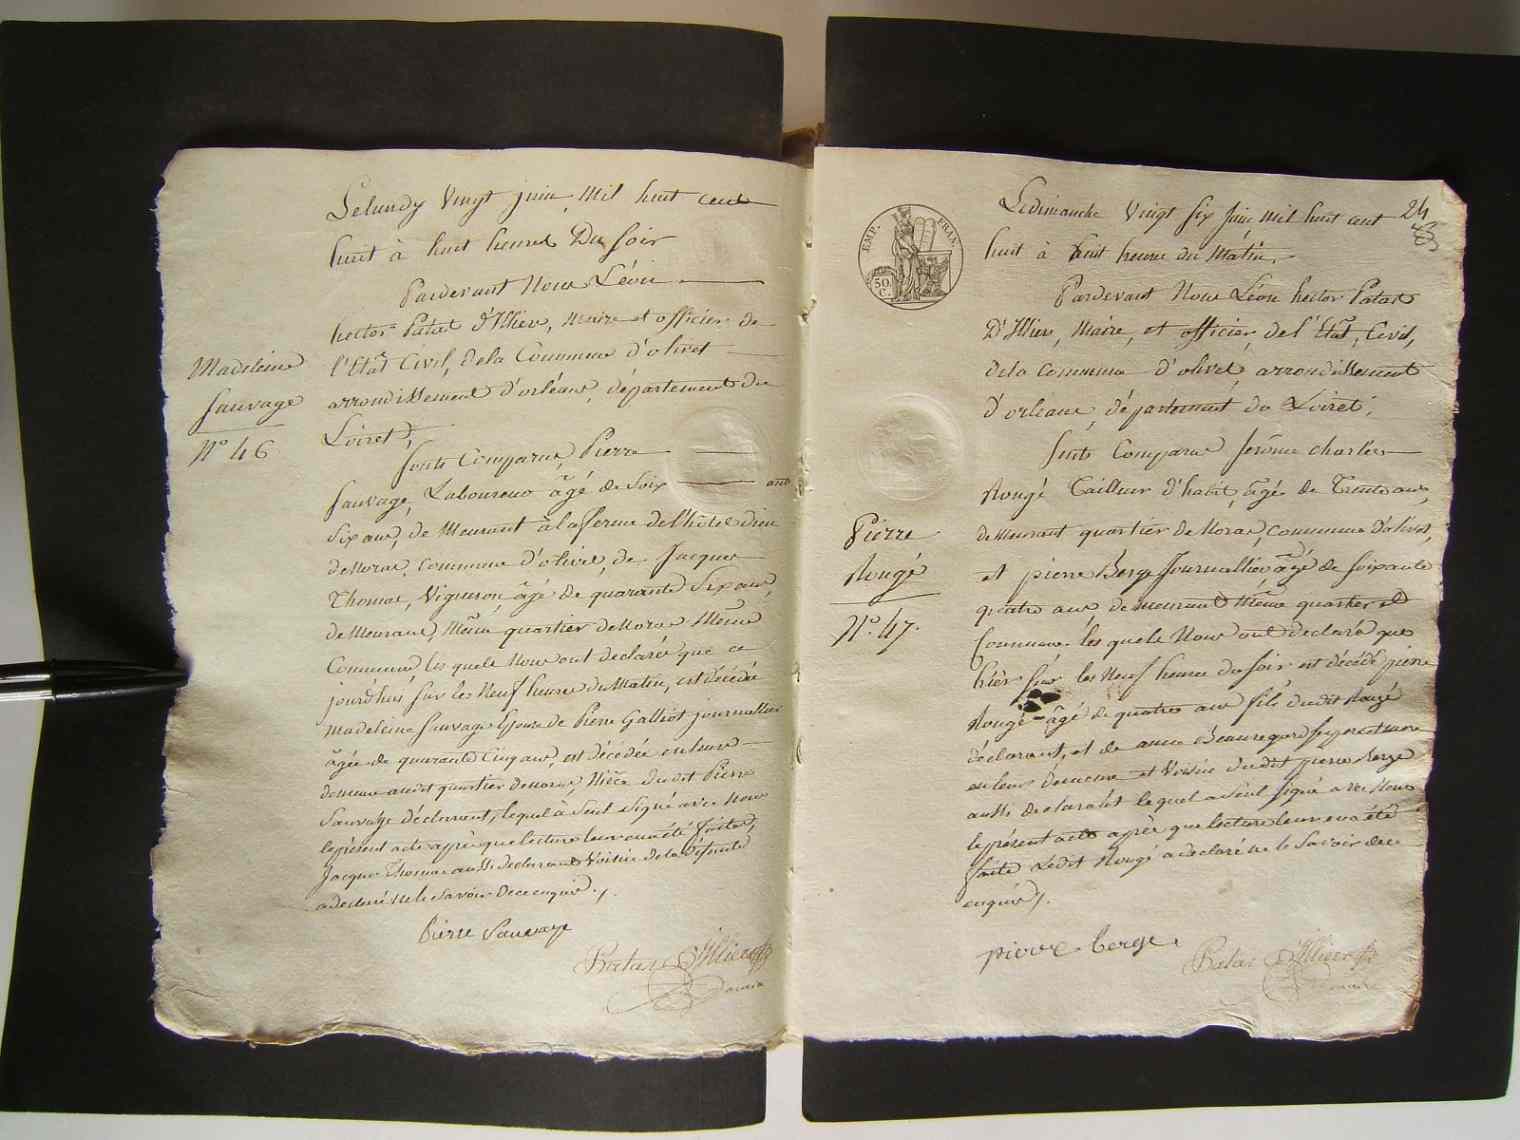 Le lundy Vingt juin, Mil huit cent
huit à huit heures Du soir
Pardevant Nous Léon
hector Patas d'Illiers, Maire et officier de
l'Etat Civil, de la Commune d'olivet
arrondissement d'orléans, département du
Loiret,
Madeleine
Sauvage
N° 46
Sont Comparus, Pierre
Sauvage, Laboureur âgé de Soix ans
Six ans, de Meurant à la ferme de l'hôtel dieu
de Noras, Commune d'olivet, de Jacques
Thomas, Vigneron, âgé de quarante Six ans,
de Meurant, Même quartier de Noras Même
Commune, les quels Nous ont declaré que ce
jourd'hui, sur les Neuf heures du Matin, est décédée
Madeleine Sauvage Epouse de Pierre Galliot journallier
âgée de quarante Cinq ans, est décédée en leur
demeure audit quartier de Noras, Nièce dudit Pierre
Sauvage déclarant, lequel à Seul Signé avec Nous
le présent acte après que lecture leur en a été faite,
Jacques Thomas aussi declarant Voisin de la Défunte
a declaré ne le Savoir De ce enquis.
Pierre Sauvage
Patas d'Illiers
maire
24
EMP. FRAN.
50.
C.
Le dimanche Vingt six Juin Mil huit cent
huit à huit heures du Matin,
Pardevant Nous Léon hector Patas
D'Illiers, Maire, et officier, de l'Etat, Civil,
de la Commune d'olivet arrondissement
d'orléans, département du Loiret,
Sont Comparus Jérôme charles
Pierre
Rougé
N°. 47.
Rougé Tailleur d'habit, âgé de Trente ans,
de Meurant quartier de Noras, Commune d'olivet,
et pierre Berge Journallier âgé de soixante
quatre ans demeurant Même quartier et
Commune. les quels Nous ont declaré que
hièr sur les Neuf heures du soir est décédé pierre
Rougé âgé de quatre ans fils dudit Rougé
déclarant, et de anne Beauregard
en leur demeure et Voisin dudit pierre Berge
aussi declarant lequel a Seul signé avec Nous
le présent acte après que lecture leur en a été
faite Ledit Rougé a declaré ne le Savoir de ce
enquis.
pierre berge.
Patas d'Illiers
maire